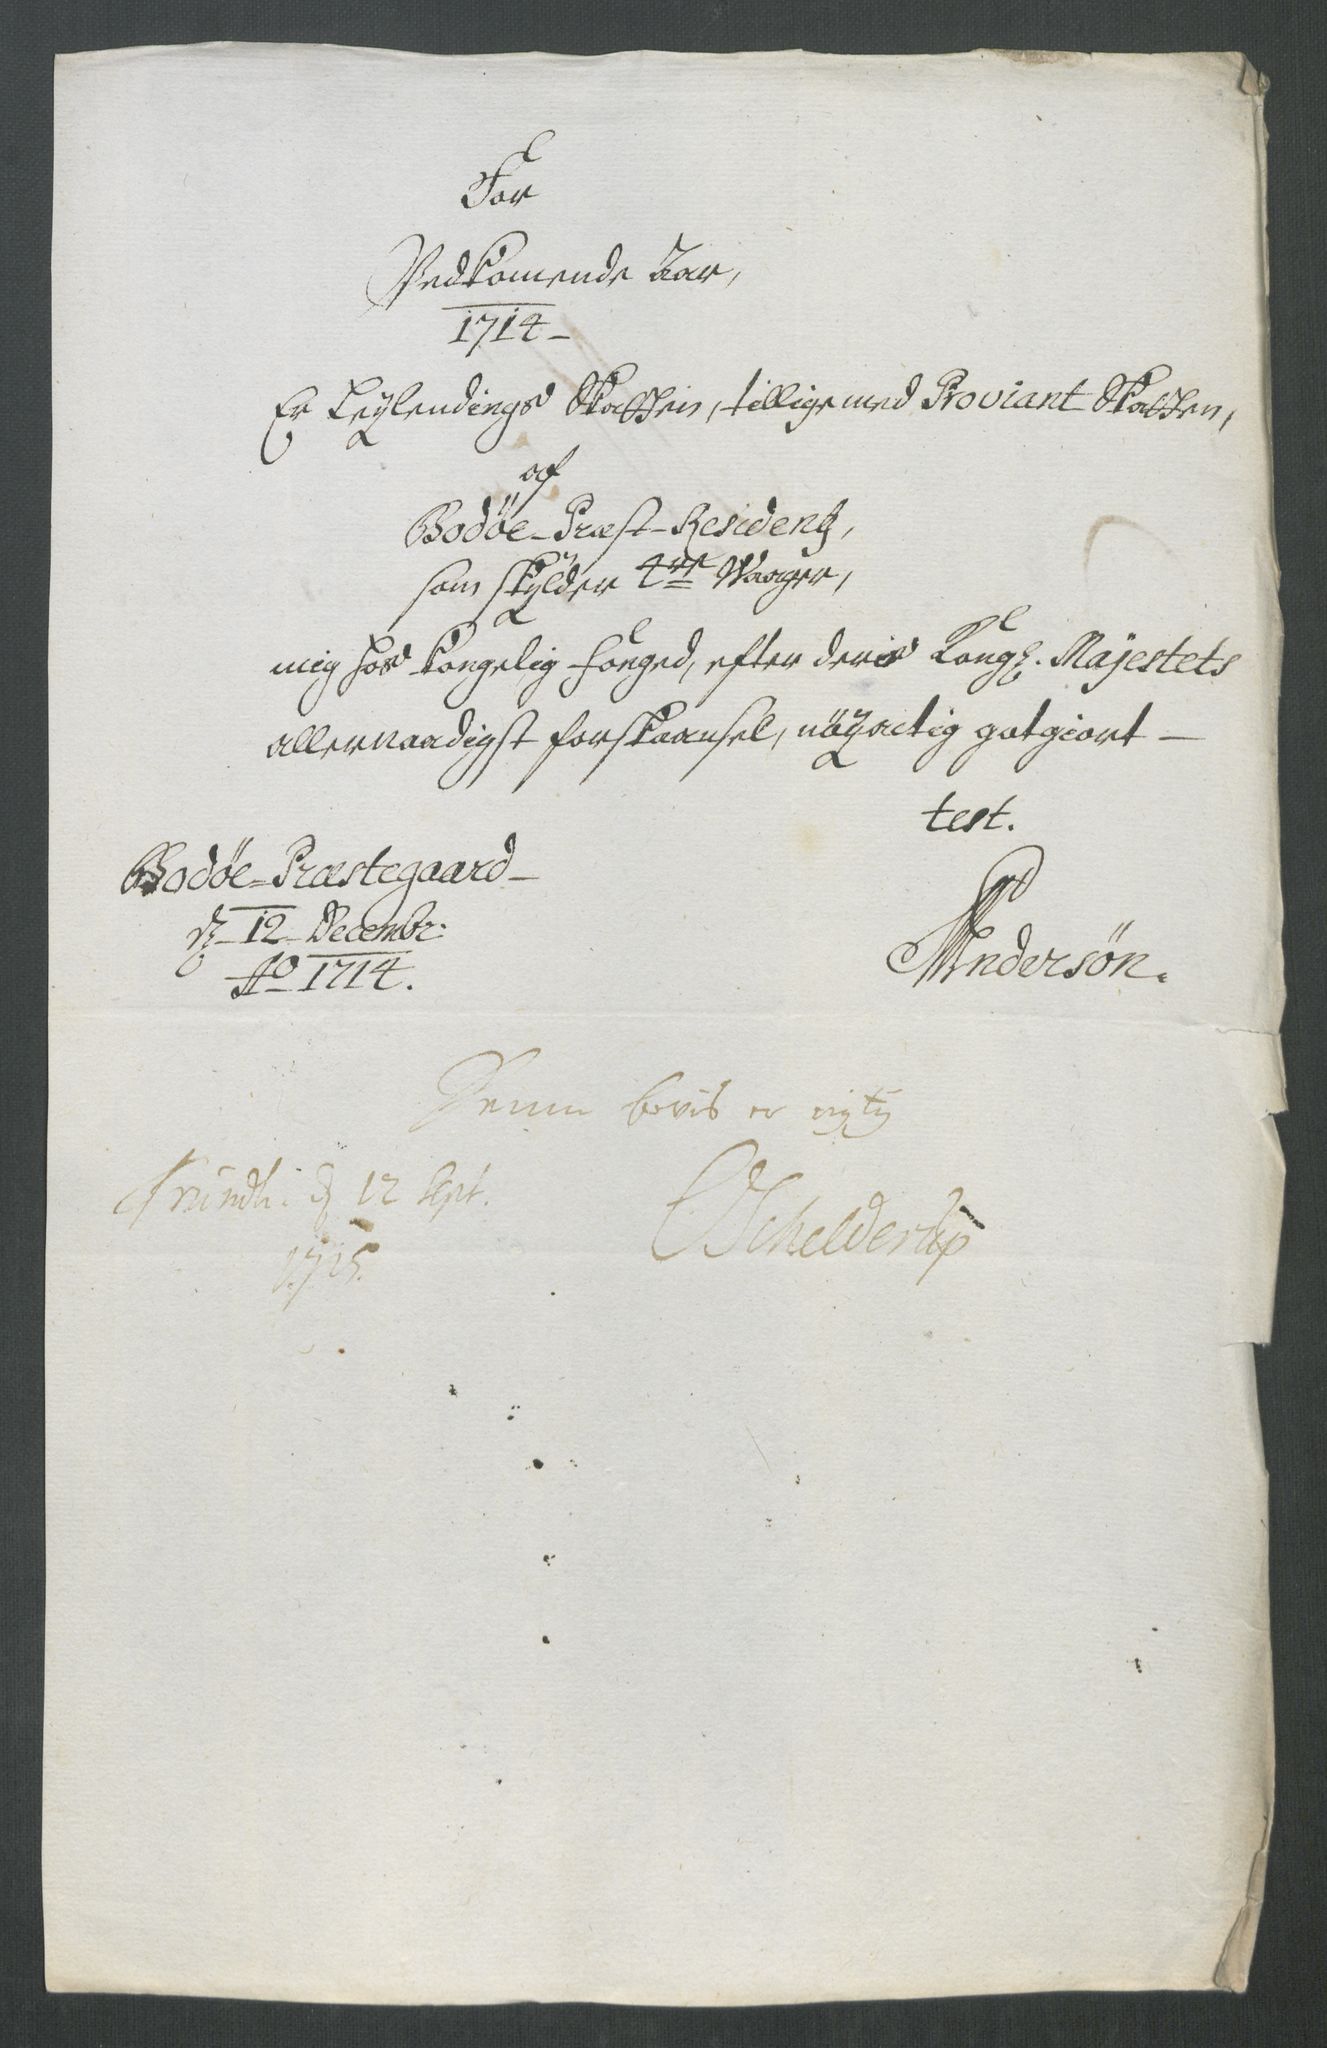 For
Vedkomende Aar,
1714 –
Er Leylendings Skatten, tillige med Proviant Skatten,
af
Bodøe – Præst – Residentz,
som skÿlder 4re Waager,
mig hos Kongelig Foaged, efter deris Kongl. Majestets
allernaadigst forskaansel, nöyactig gotgiort –
test.
Bodøe – Præstegaard –
d. 12 Decembr:
Ao 1714.
Andersøn.
Denne bevis er rigtig
Trundh: d 12 Sept.
1715.
Schelderup